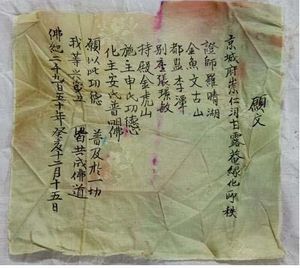 願文
京城府崇仁洞甘露菴緣化所秩
證師羅晴湖
金魚文古山
都監李
別座張
持殿金虎山
施主申氏功德
化主安氏普明佛
願以此功德 普及於一切
我等與衆生 皆共成佛道
佛紀二千九百五十年癸亥十二月十五日